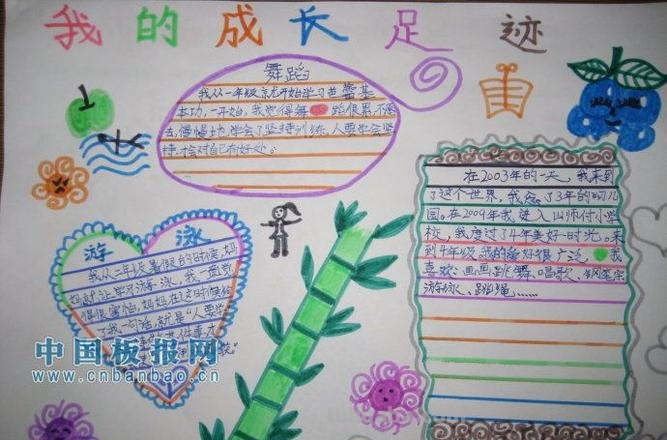 我的成长足迹
舞蹈
我从一年级就开始学习芭蕾基
本功,一开始,我觉得舞蹈很累,不愿
去,慢慢地,学会了坚持训练,人要学会坚
持,才会对自己有好处。
在2003年的一天,我来到
了这个世界,我念了3年的幼儿
园。在2009年我进入山师付小学
校,我度过了4年美好时光。来
到4年级,我的爱好很广泛 我
喜欢:画画、跳舞、唱歌、钢笔字
游泳、跳绳……
游泳
我从二年级暑假的时候,妈
妈就让学习游泳,我一直
很害怕,妈妈在这时候给
了我一句话,就是“人要学
中国板报网
www.cnbanbao.cn